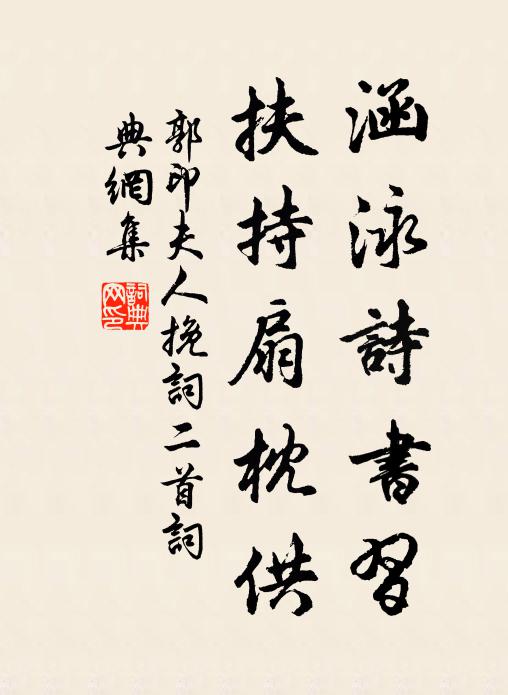 涵泳詩書習
扶持扇枕供
郭印夫人挽詞二首詞
典網集
詞典網印